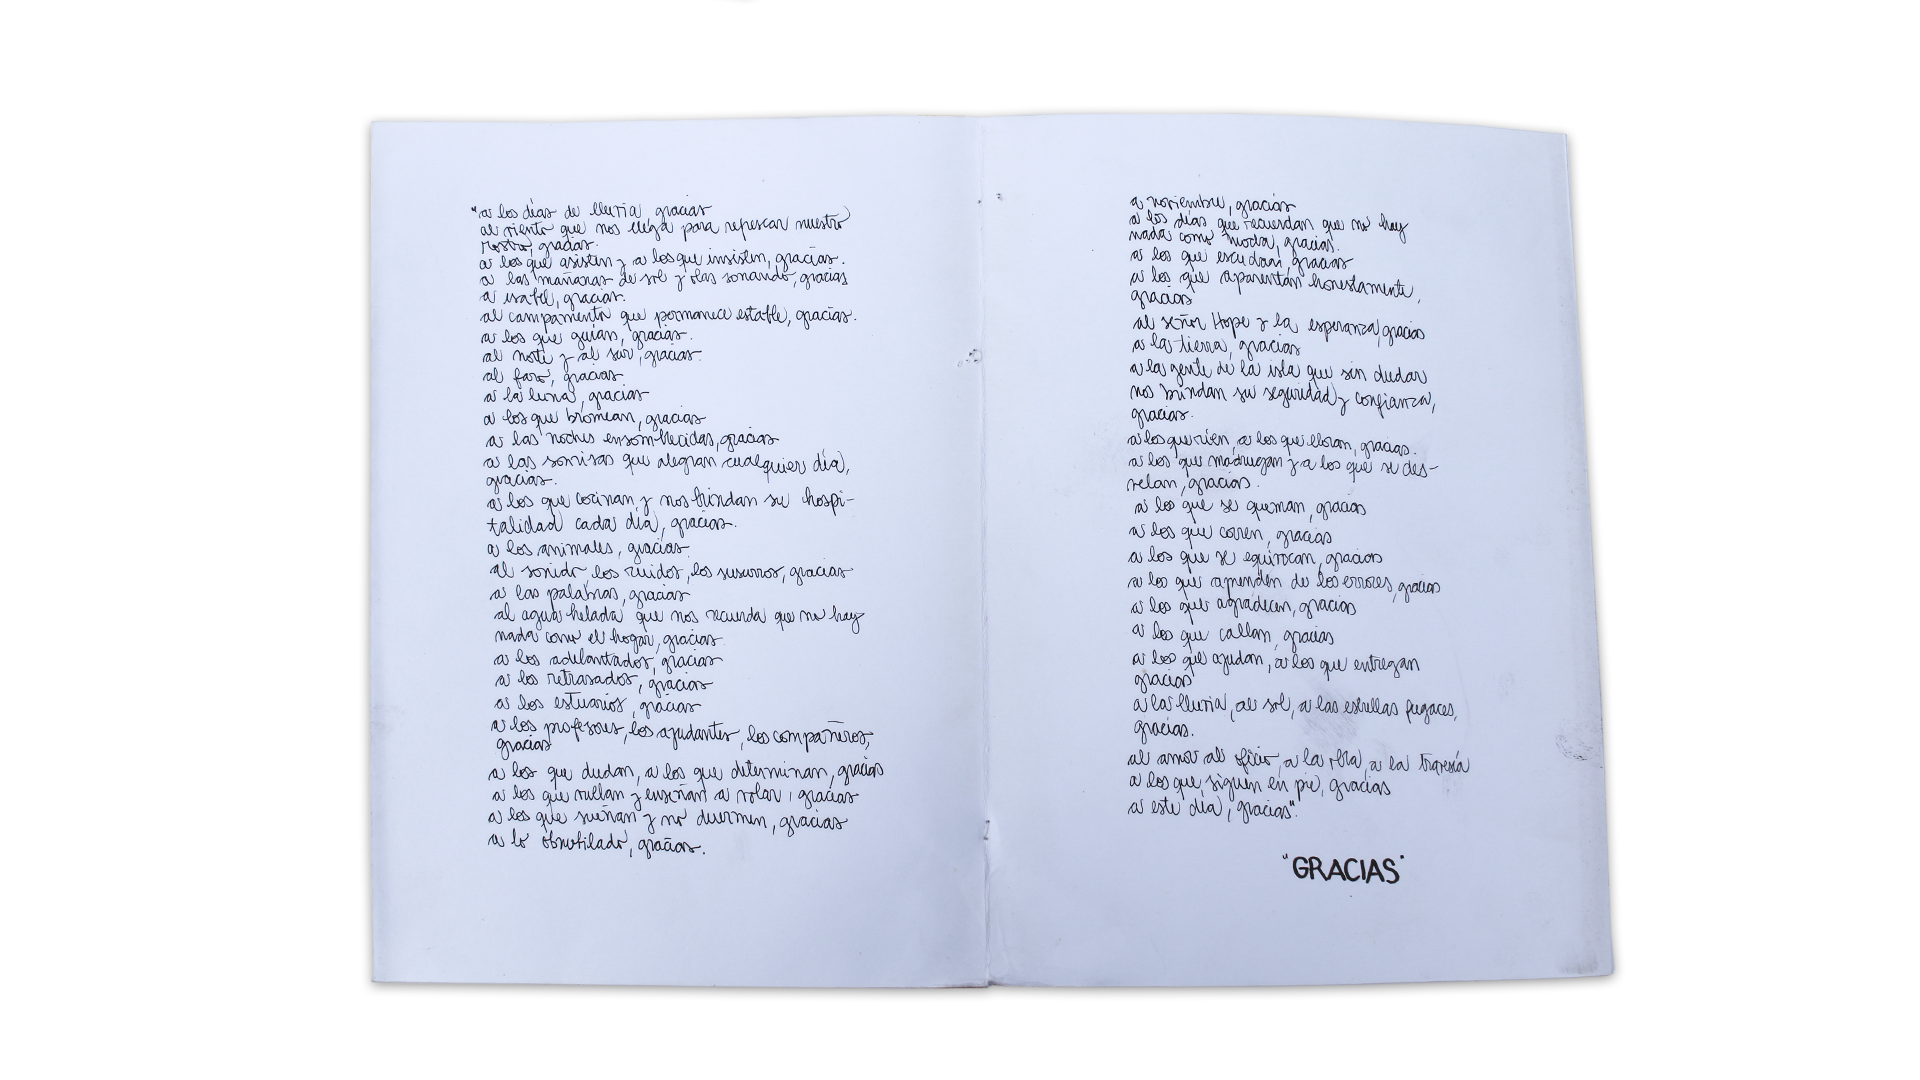 "a los días de lluvia, gracias
al viento que nos llega para refrescar nuestro
rostro, gracias.
a los que asisten y a los que insisten, gracias.
a las mañanas de sol y olas sonando, gracias
a isabel, gracias.
al campamento que permanece estable, gracias.
a los que guían, gracias.
al norte y al sur, gracias.
al faro, gracias
a la luna, gracias
a los que bromean, gracias
a las noches ensombrecidas, gracias
a las sonrisas que alegran cualquier día,
gracias.
a los que cocinan y nos brindan su hospi-
talidad cada día, gracias.
a los animales, gracias
al sonido, los ruidos, los susurros, gracias
a las palabras, gracias
al agua helada que nos recuerda que no hay
nada como el hogar, gracias
a los adelantados, gracias
a los retrasados, gracias
a los estuarios, gracias
a los profesores, los ayudantes, los compañeros,
gracias
a los que dudan, a los que determinan, gracias
a los que vuelan y enseñan a volar, gracias
a los que sueñan y no duermen, gracias
a lo obnubilado, gracias.
a noviembre, gracias
a los días que recuerdan que no hay
nada como gracias.
a los que escudan, gracias
a los que aparentan honestamente,
gracias
al señor Hope y la esperanza, gracias
a la tierra, gracias
a la gente de la isla que sin dudar
nos brindan su seguridad y confianza,
gracias.
a los que ríen, a los que lloran, gracias.
a los que madrugan y a los que se des-
velan, gracias.
a los que se queman, gracias
a los que corren, gracias
a los que se equivocan, gracias
a los que aprenden de los errores, gracias
a los que agradecen, gracias
a los que callan, gracias
a los que ayudan, a los que entregan
gracias
a la lluvia, al sol, a las estrellas fugaces,
gracias.
al amor al oficio, a la obra, a la travesía
a los que siguen en pie, gracias
a este día, gracias".
"GRACIAS"